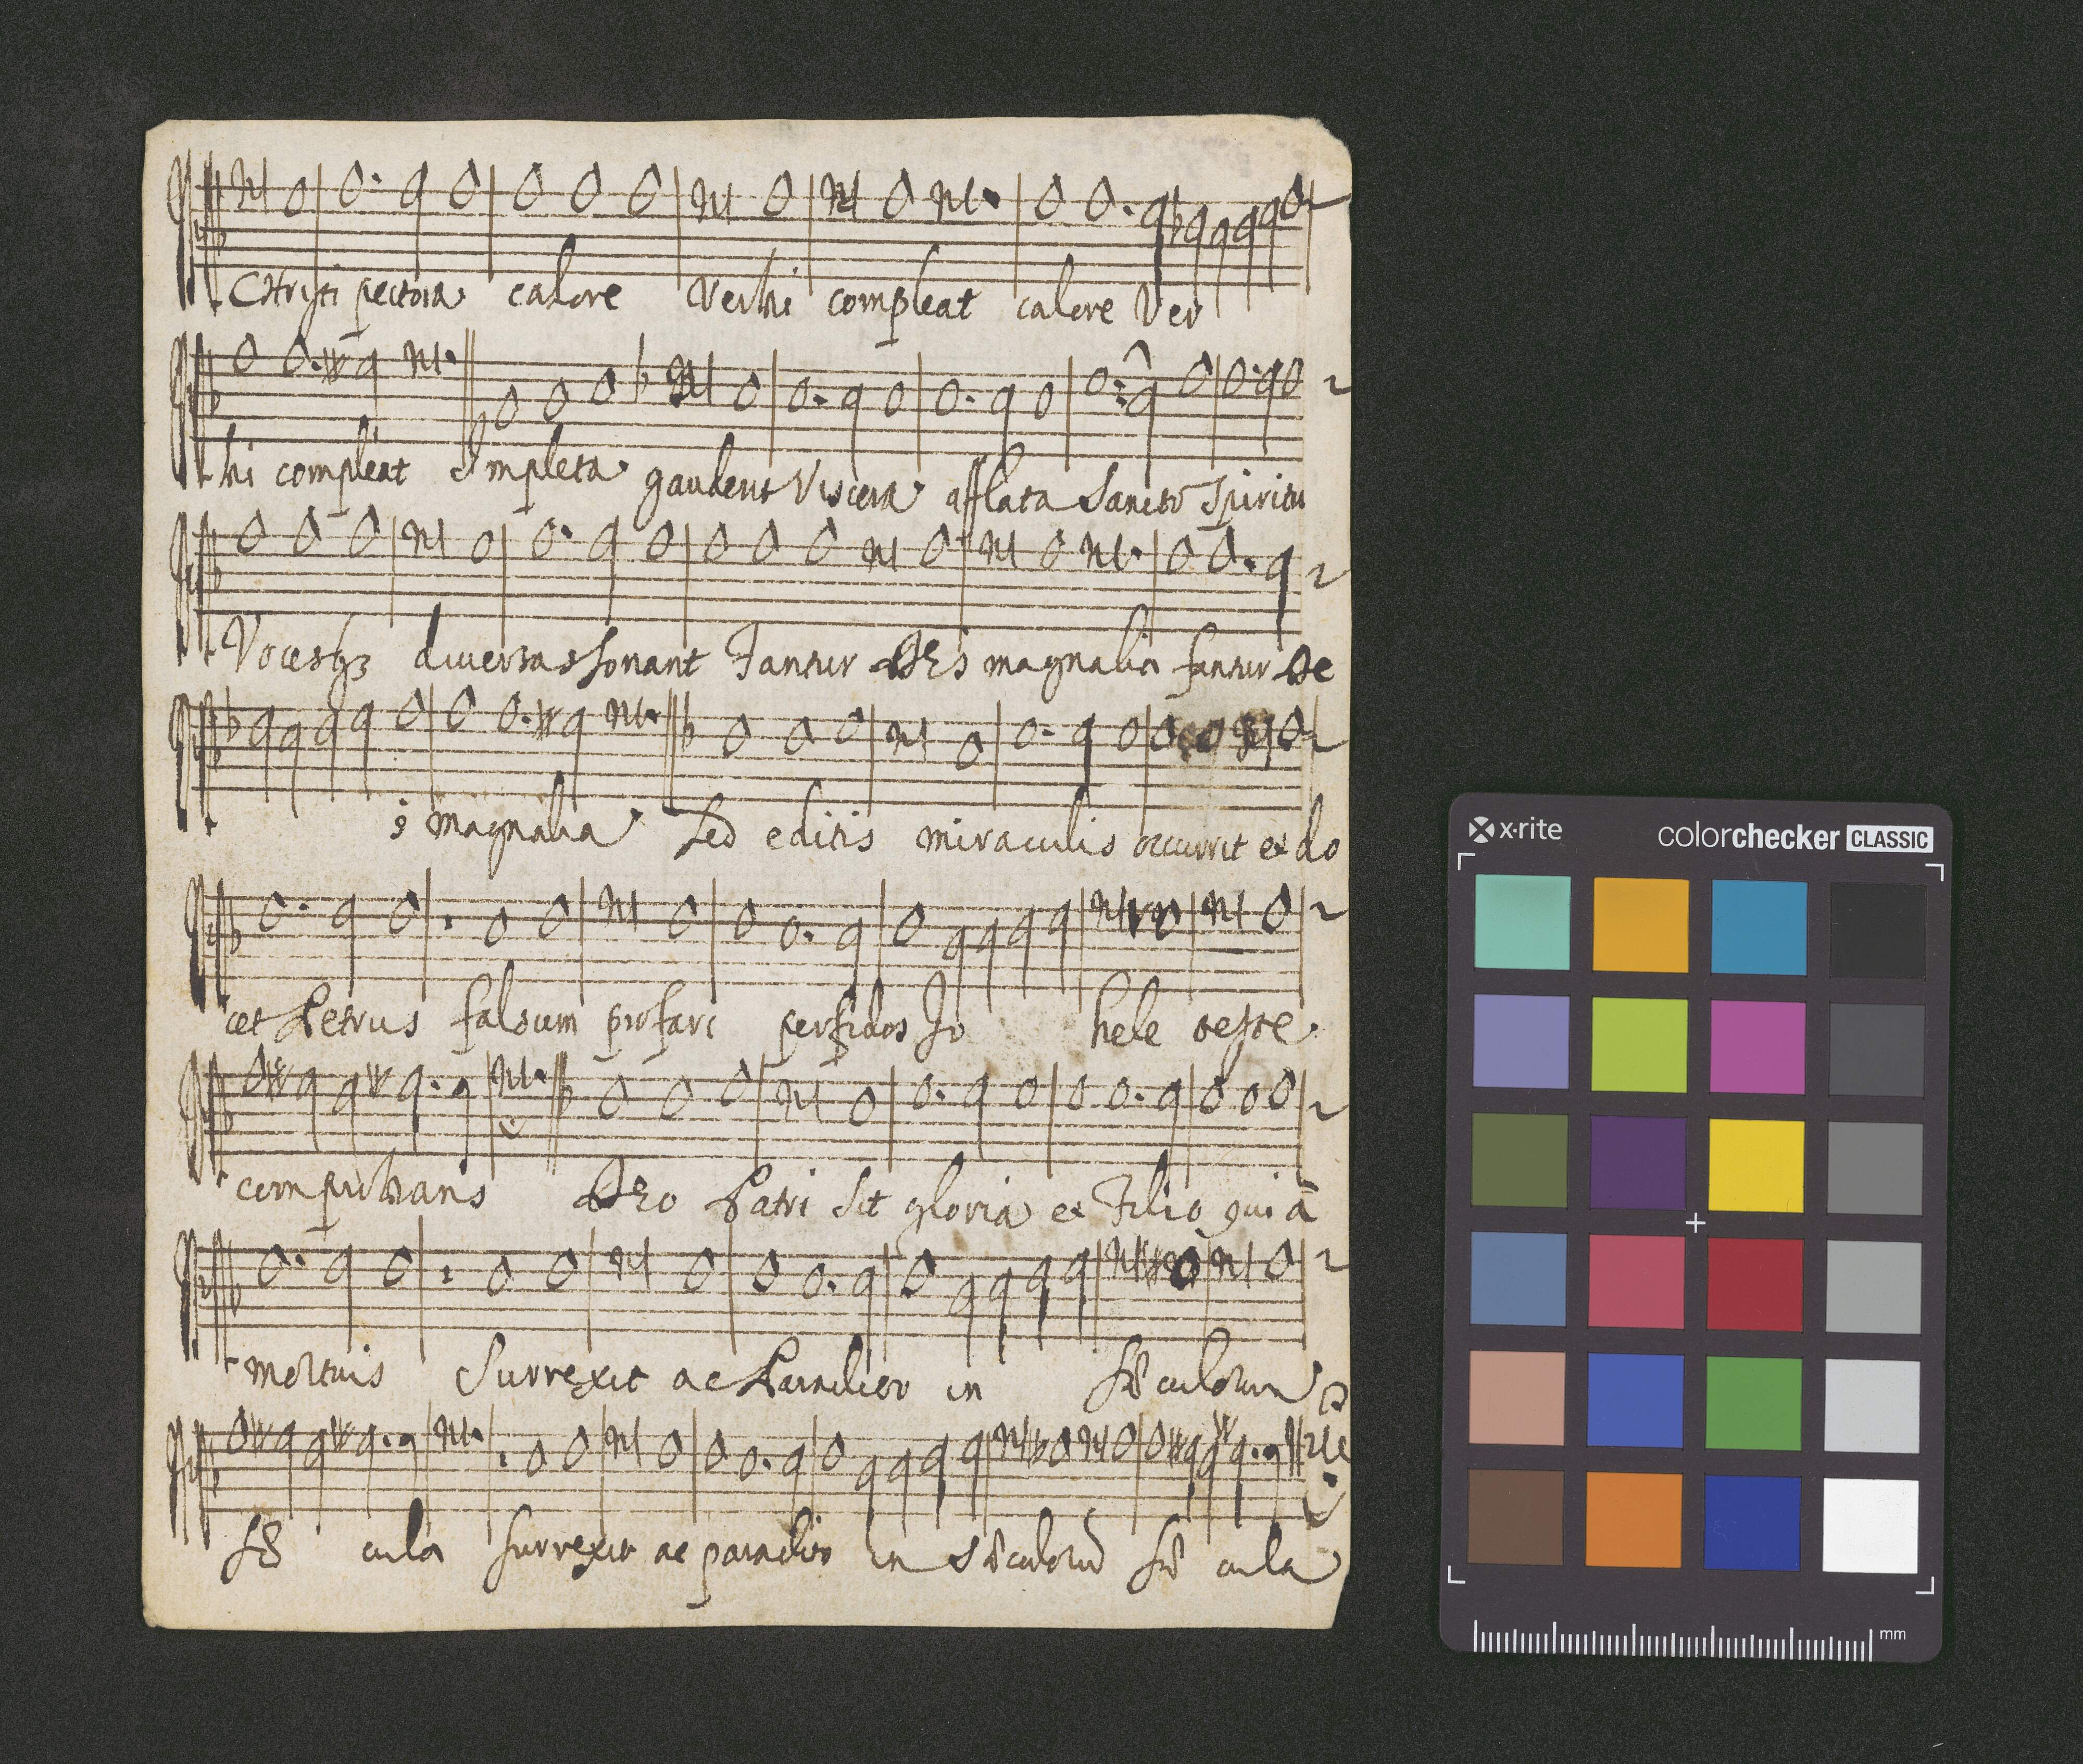 Christi pectora calore Verbi compleat calore Ver
bi compleat Impleta gaudent Viscera afflata Sancto Spiritu
Vocesq3 diuersas sonant Fantur DEi magnalia fantur De
i magnalia Sed editis miraculis occurrit et do
cet Petrus falsum profari perfidos Jo hele teste
comprobans DEo Patri sit gloria et Filio qui à
mortuis Surrexit ac Paraclito in sæculorum
sæ cula surrexit ac paraclito in sæculorũ sæ cula
x·rite colorchecker CLASSIC
mm